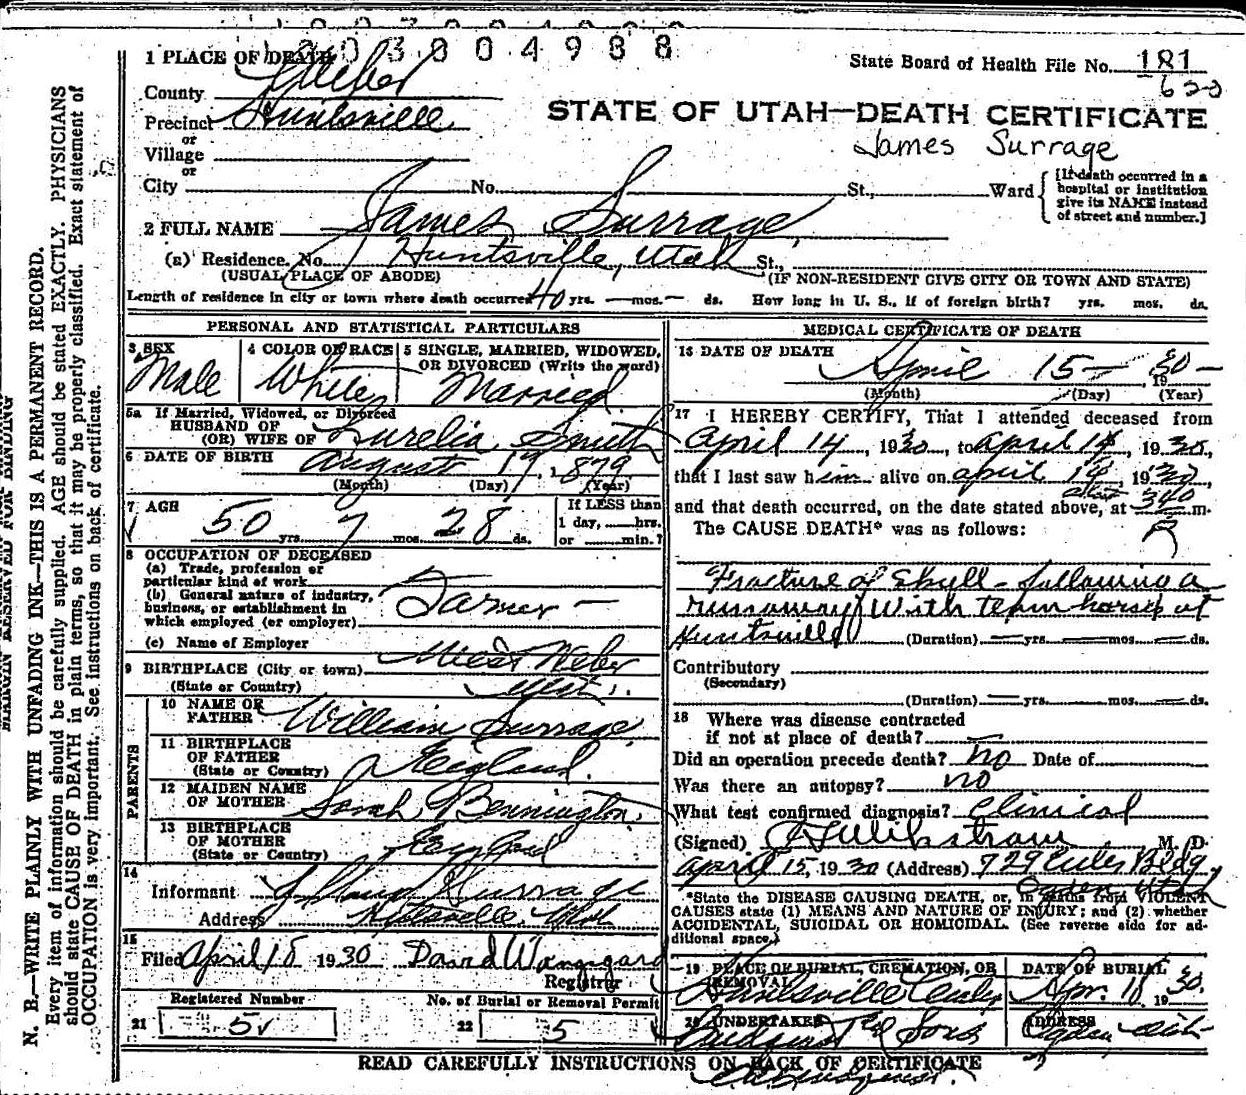 003004988
1 PLACE OF DEATH
State Board of Health File No. 181
622
County Weber
STATE OF UTAH—DEATH CERTIFICATE
Precinct Huntsville
James Surrage
or
Village
or
City No. St., Ward
[If death occurred in a
hospital or institution
give its NAME instead
of street and number.]
2 FULL NAME James Surrage
(a) Residence. No. Huntsville, Utah St.,
(USUAL PLACE OF ABODE) (IF NON-RESIDENT GIVE CITY OR TOWN AND STATE)
Length of residence in city or town where death occurred 40 yrs. — mos. — ds. How long in U. S., if of foreign birth? yrs. mos. ds.
PERSONAL AND STATISTICAL PARTICULARS
3 SEX
Male
4 COLOR OR RACE
White
5 SINGLE, MARRIED, WIDOWED,
OR DIVORCED (Write the word)
Married
5a If Married, Widowed, or Divorced
HUSBAND OF
(OR) WIFE OF Lurelia Smith
6 DATE OF BIRTH August 17, 1879
(Month) (Day) (Year)
7 AGE
50 yrs. 7 mos. 28 ds.
If LESS than
1 day, hrs.
or min.?
8 OCCUPATION OF DECEASED
(a) Trade, profession or
particular kind of work
(b) General nature of industry,
business, or establishment in
which employed (or employer)
Farmer —
(c) Name of Employer
9 BIRTHPLACE (City or town) West Weber
(State or Country) Utah
PARENTS
10 NAME OF
FATHER William Surrage
11 BIRTHPLACE
OF FATHER
(State or Country) England.
12 MAIDEN NAME
OF MOTHER Sarah Bennington
13 BIRTHPLACE
OF MOTHER
(State or Country) England
14
Informant Surrage
Address Huntsville, Utah
15
Filed April 18 1930 David Wangsgard
Registrar
Registered Number
21 5
No. of Burial or Removal Permit
22 5
MEDICAL CERTIFICATE OF DEATH
16 DATE OF DEATH
April 15 — 1930 —
(Month) (Day) (Year)
17 I HEREBY CERTIFY, That I attended deceased from
April 14, 1930, to April 14, 1930,
that I last saw him alive on April 14, 1930,
and that death occurred, on the date stated above, at 340 m.
The CAUSE DEATH* was as follows:
Fracture of Skull - following a
runaway with team horses at
Huntsville
(Duration) — yrs. — mos. — ds.
Contributory
(Secondary)
(Duration) — yrs. — mos. — ds.
18 Where was disease contracted
if not at place of death?
Did an operation precede death? no Date of
Was there an autopsy? no
What test confirmed diagnosis? Clinical
(Signed) M. D.
April 15, 1930 (Address) 729 Eccles Bldg.
Ogden Utah
*State the DISEASE CAUSING DEATH, or, in deaths from VIOLENT
CAUSES state (1) MEANS AND NATURE OF INJURY; and (2) whether
ACCIDENTAL, SUICIDAL OR HOMICIDAL. (See reverse side for ad-
ditional space.)
19 PLACE OF BURIAL, CREMATION, OR
REMOVAL
Huntsville
DATE OF BURIAL
Apr. 18 1930.
20 UNDERTAKER
& Sons
ADDRESS
Ogden Utah
READ CAREFULLY INSTRUCTIONS ON BACK OF CERTIFICATE
MARGIN RESERVED FOR BINDING
N. B.—WRITE PLAINLY WITH UNFADING INK—THIS IS A PERMANENT RECORD.
Every item of information should be carefully supplied. AGE should be stated EXACTLY. PHYSICIANS
should state CAUSE OF DEATH in plain terms, so that it may be properly classified. Exact statement of
OCCUPATION is very important. See instructions on back of certificate.